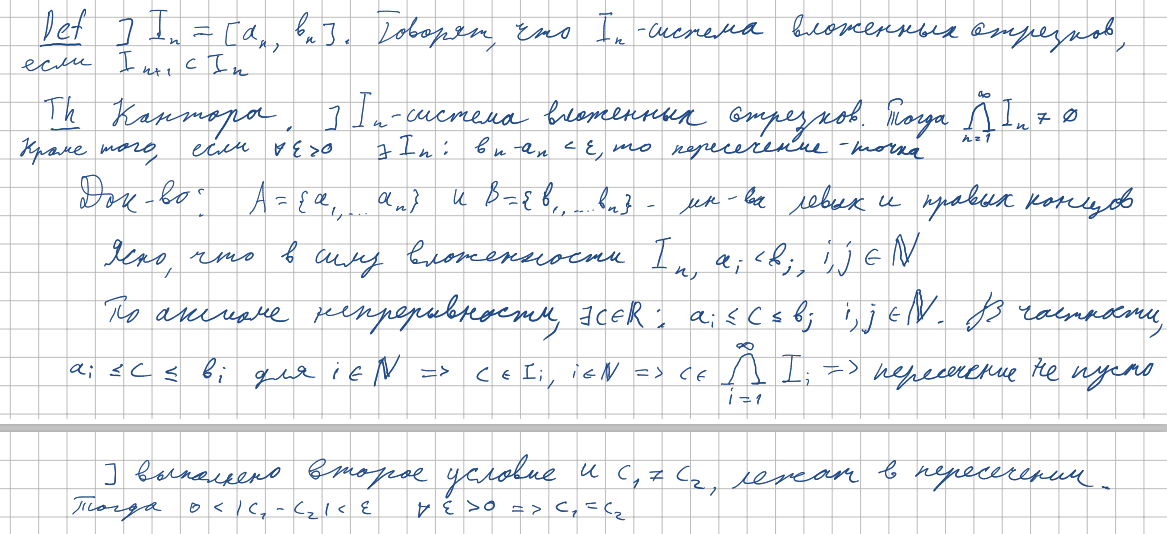 Def ] Iₙ = [aₙ, bₙ]. Говорят, что Iₙ - система вложенных отрезков,
если Iₙ₊₁ ⊂ Iₙ
Th Кантора. ] Iₙ - система вложенных отрезков. Тогда ⋂ₙ₌₁^∞ Iₙ ≠ ∅
Кроме того, если ∀ε>0 ∃ Iₙ: bₙ-aₙ < ε, то пересечение - точка
Док-во: A = {a₁,...aₙ} и B = {b₁,...bₙ} - мн-ва левых и правых концов
Ясно, что в силу вложенности Iₙ, aᵢ < bⱼ, i,j ∈ ℕ
По аксиоме непрерывности, ∃c∈ℝ: aᵢ ≤ c ≤ bⱼ i,j ∈ ℕ. В частности,
aᵢ ≤ c ≤ bᵢ для i ∈ ℕ => c ∈ Iᵢ, i∈ℕ => c ∈ ⋂ᵢ₌₁^∞ Iᵢ => пересечение не пусто
] выполнено второе условие и c₁ ≠ c₂, лежат в пересечении.
Тогда 0 < |c₁ - c₂| < ε ∀ ε > 0 => c₁ = c₂